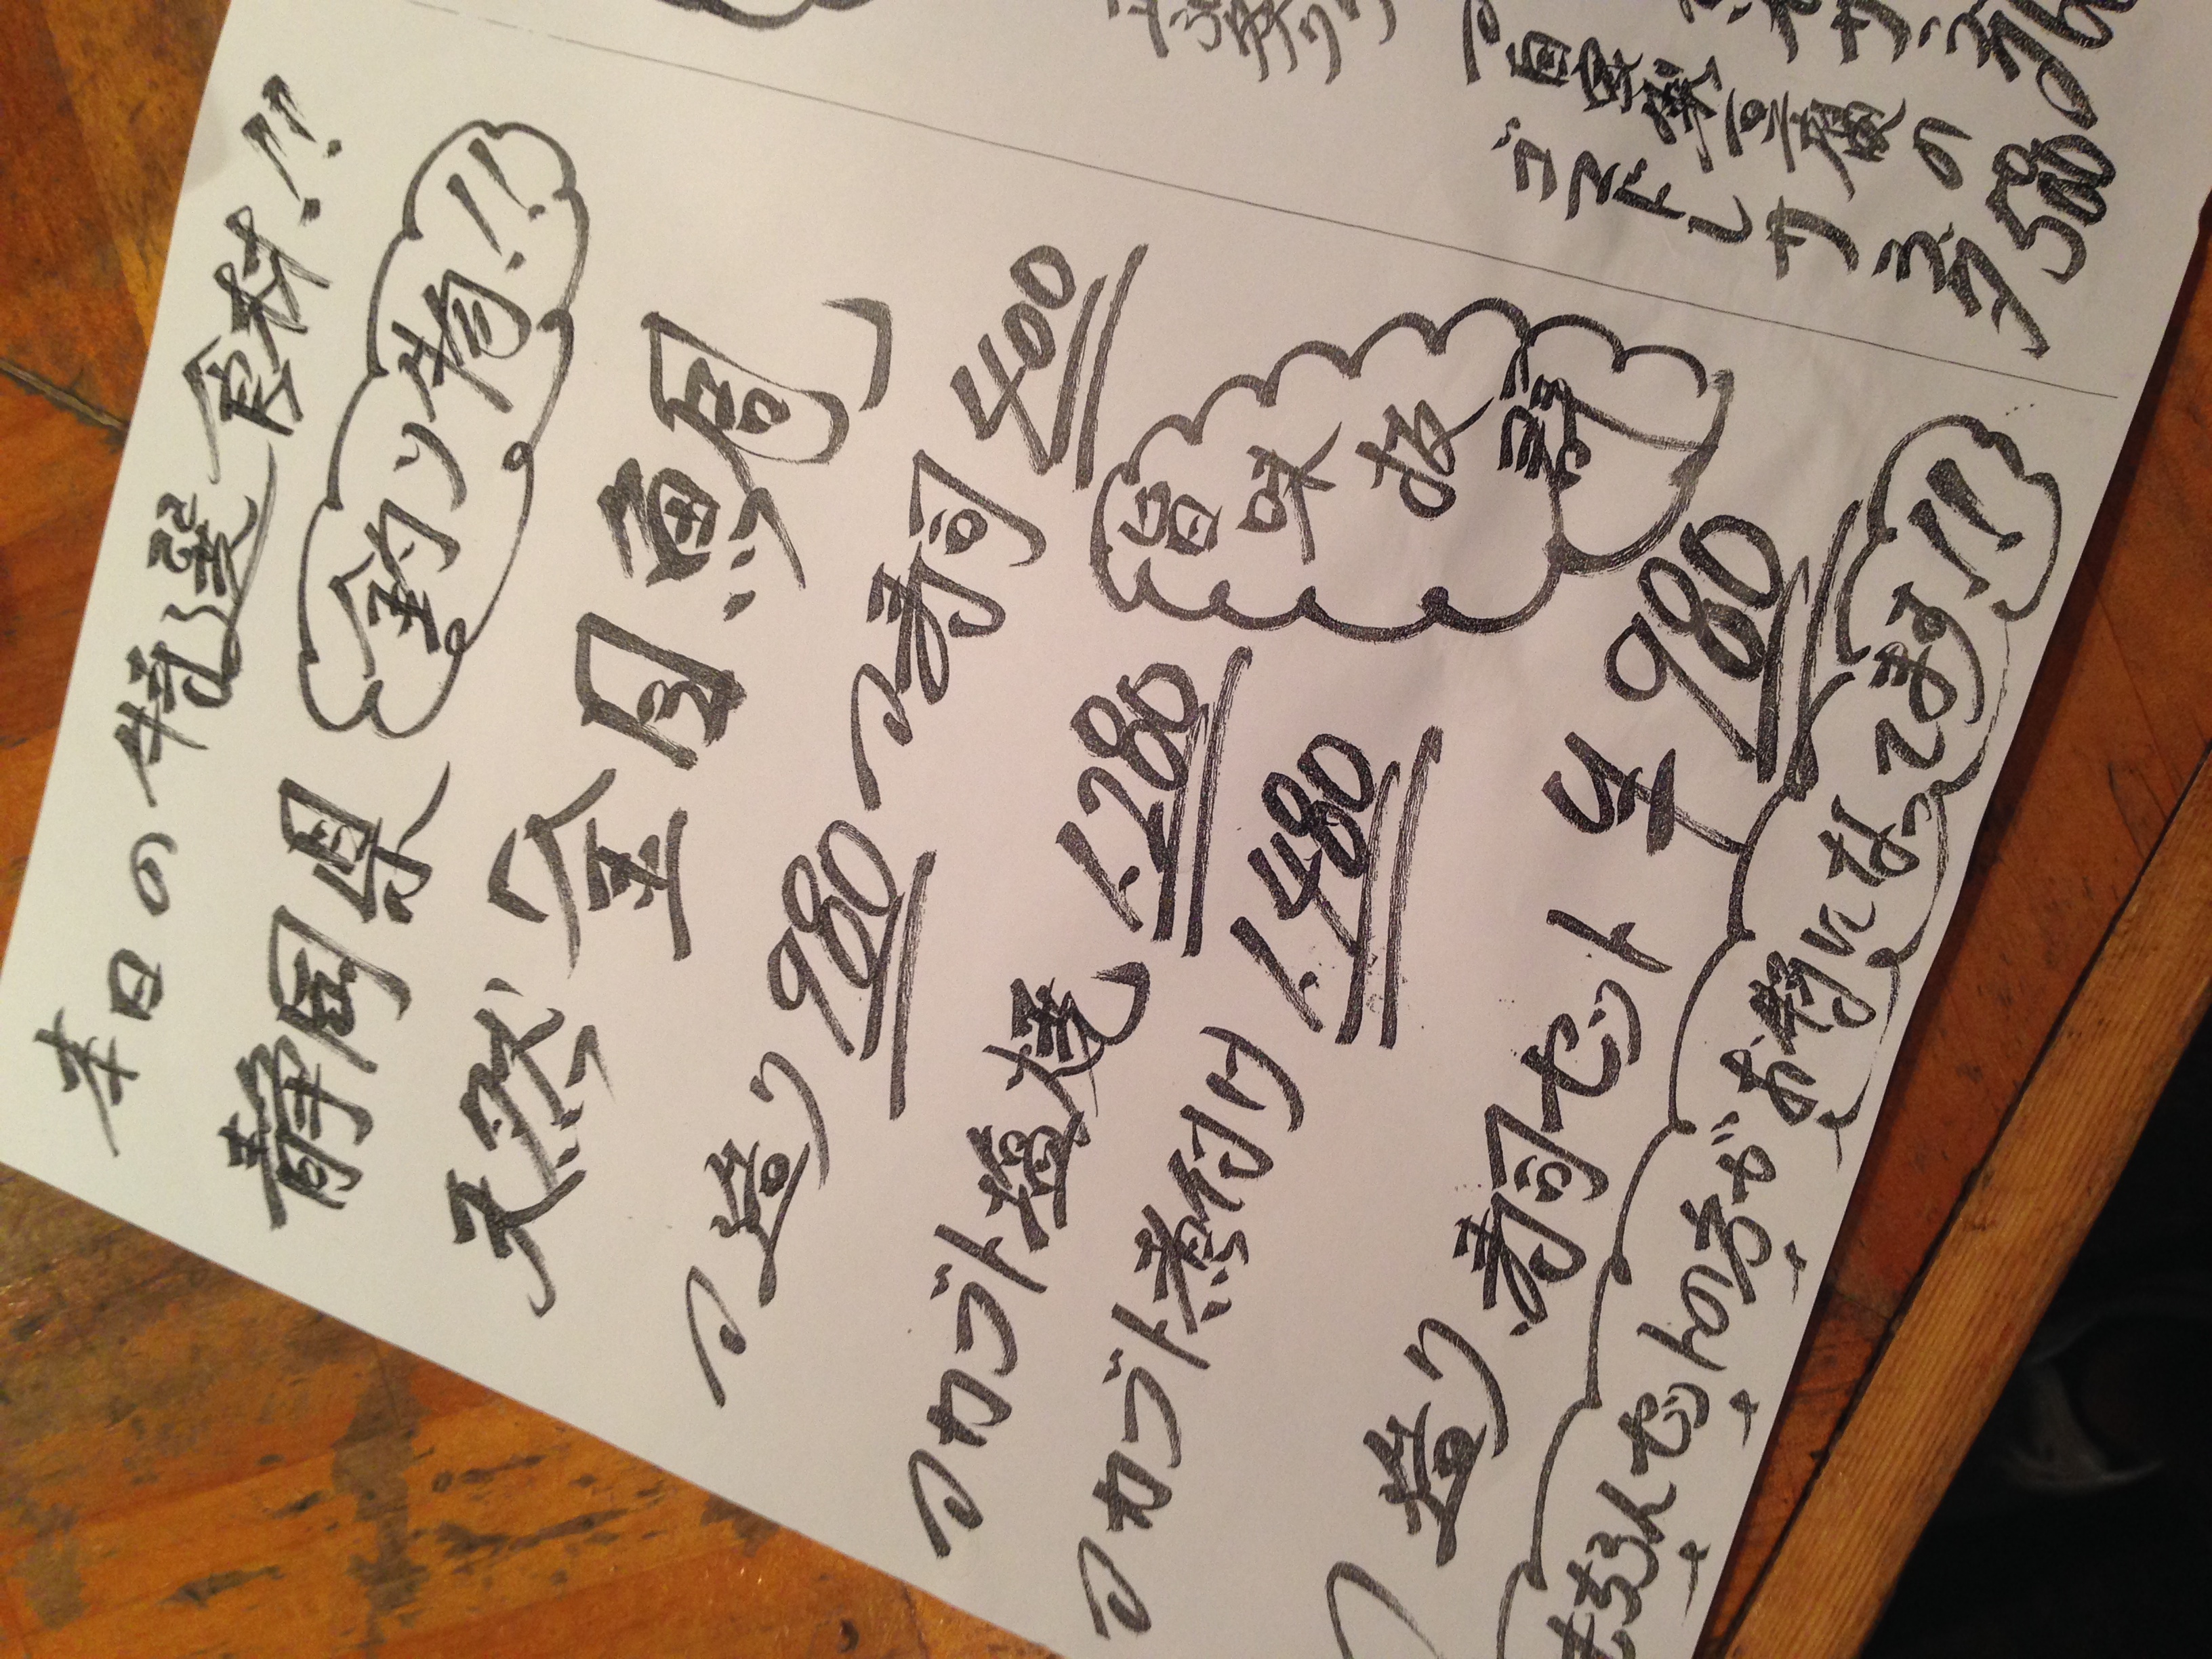 本日の特選食材!!
静岡県 釣り物!!
天然金目鯛
造り 980 寿司 400
カブト塩焼 1.280
カブト煮付け 1.480
旨味抜群
造り 寿司セット ¥980
もちろんセットの方がお得になってます!!
580